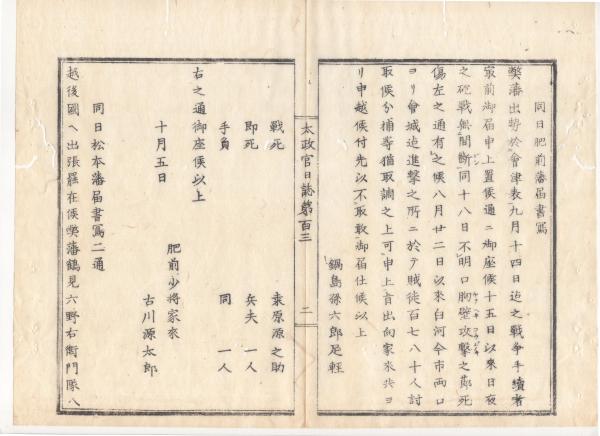 同日肥前藩届書寫
弊藩出勢於會津表九月十四日迄之戰爭手續者
最前御届申上置候通ニ御座候十五日以来日夜
之砲戰無間断同十八日不明口胸壁攻撃之節死
傷左之通有之候八月廿二日以来白河今市両口
ヨリ會城迄進撃之所ニ於テ賊徒百七八十人討
取候分捕等猶取調之上可申上旨出向家来共ヨ
リ申越候付先以不取敢御届仕候以上
鍋島孫六郎足輕
太政官日誌第百三
二
戰死 桒原源之助
即死 兵夫 一人
手負 同 一人
右之通御座候以上
十月五日 肥前少将家来
古川源太郎
同日松本藩届書寫二通
越後國ヘ出張罷在候弊藩鶴見六野右衛門隊八